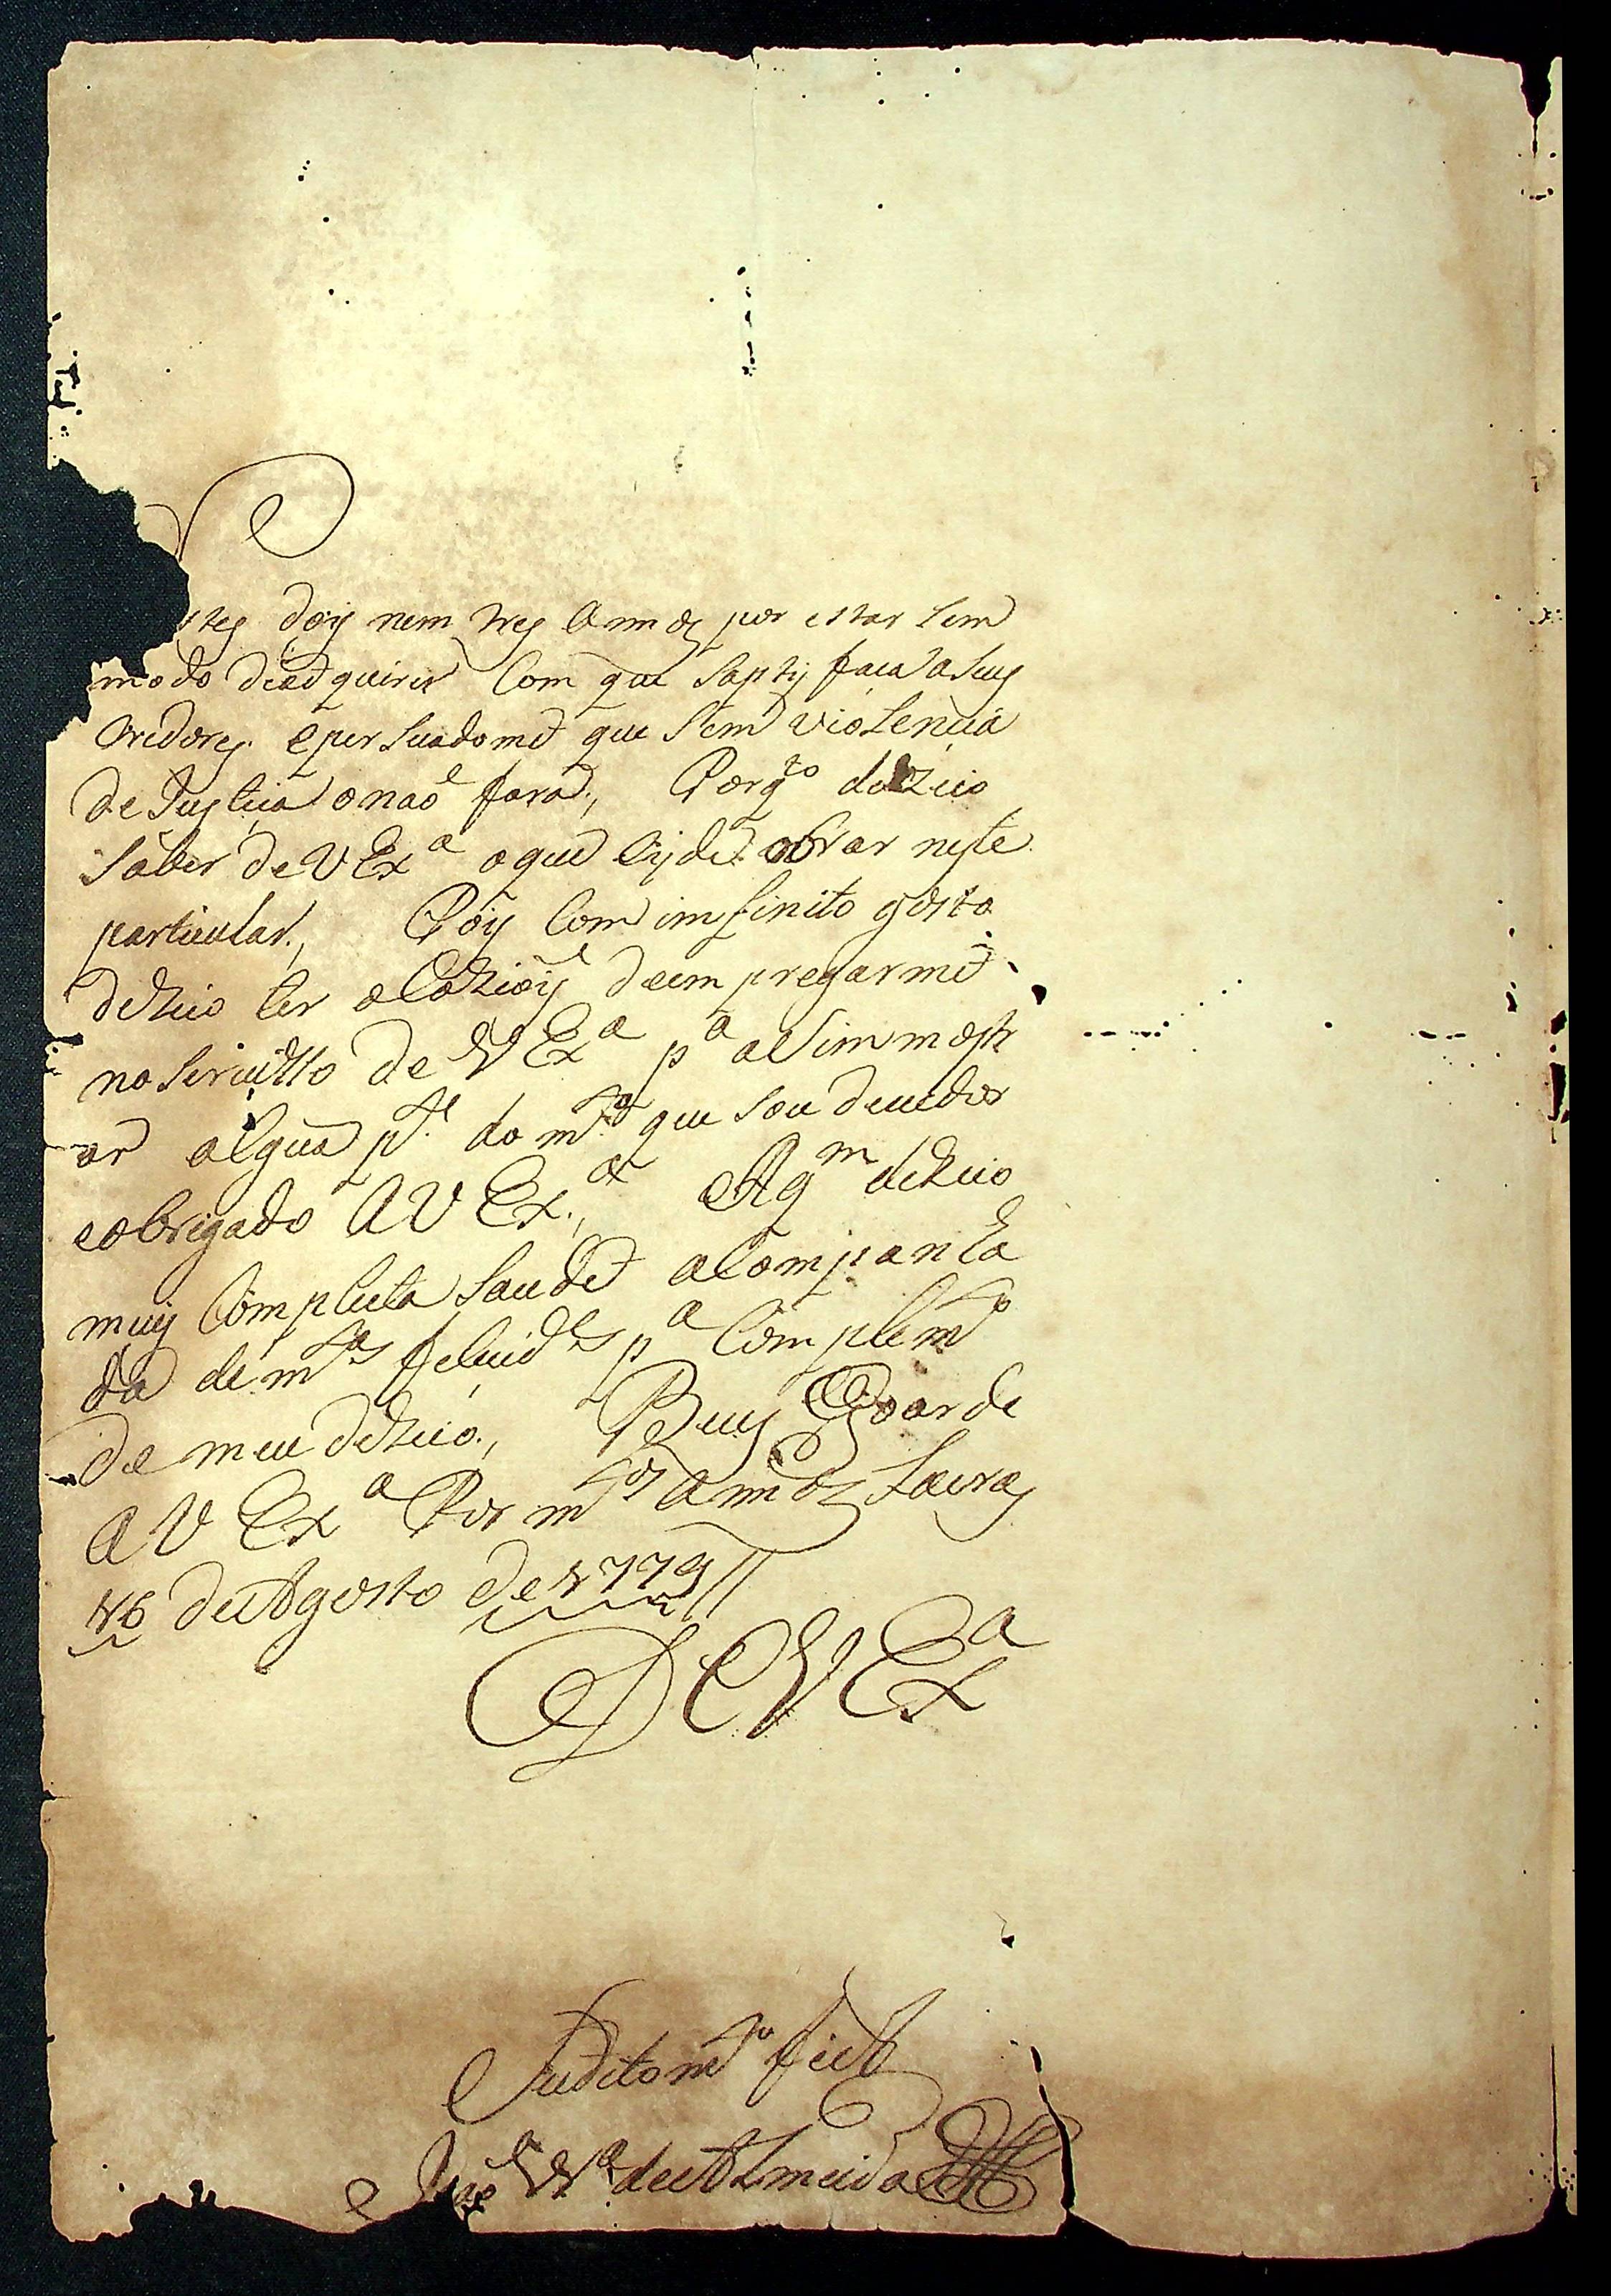 doiz nem trez Annos por estar sem
modo de adquirir Com que saptis faca aseus
credores. e persuadome que sem violencia
de Justiça o naõ fara., Porq.to dezeio
saber de V Ex.a o que hẏde obrar neste
particular., Poiz Com imfinito gosto
dezeio ter aCazioiz deempregarme
no seruiSso de V Ex.a p.a aSimmostr
ar algua p.te do m.to que sou deuedor
eobrigado AV Ex.a., A q.m dezeio
muy Completa saude aCompanha
da de m.tas feliicid.es p.a Complem.to
de meu dezeio., Deus Goarde
AV Ex.a Por m.tos Annos Lauras
16 de Agosto de 1779
De V Ex.a
Sudito m.to fiel
Joaõ de Almeida